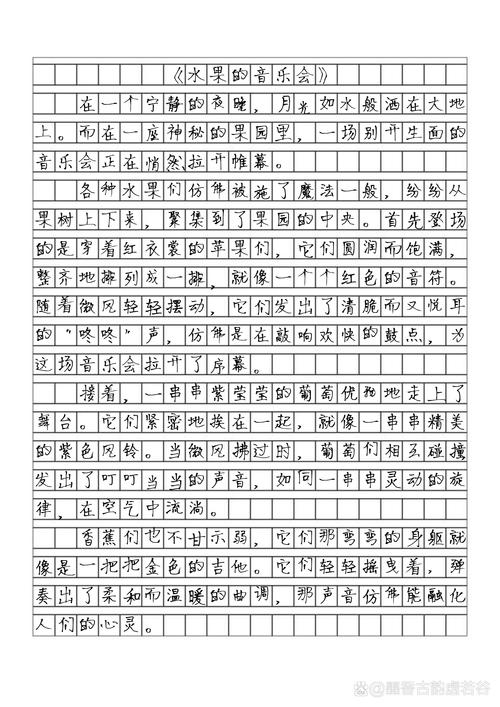 《水果的音乐会》
在一个宁静的夜晚，月光如水般洒在大地
上。而在一座神秘的果园里，一场别开生面的
音乐会正在悄然拉开帷幕。
各种水果们仿佛被施了魔法一般，纷纷从
果树上下来，聚集到了果园的中央。首先登场
的是穿着红衣裳的苹果们，它们圆润而饱满，
整齐地排列成一排，就像一个个红色的音符。
随着微风轻轻摆动，它们发出了清脆而又悦耳
的“咚咚”声，仿佛是在敲响欢快的鼓点，为
这场音乐会拉开了序幕。
接着，一串串紫莹莹的葡萄优雅地走上了
舞台。它们紧密地挨在一起，就像一串串精美
的紫色风铃。当微风拂过时，葡萄们相互碰撞
发出了叮叮当当的声音，如同一串串灵动的旋
律，在空气中流淌。
香蕉们也不甘示弱，它们那弯弯的身躯就
像是一把把金色的吉他。它们轻轻摇曳着，弹
奏出了柔和而温暖的曲调，那声音仿佛能融化
人们的心灵。